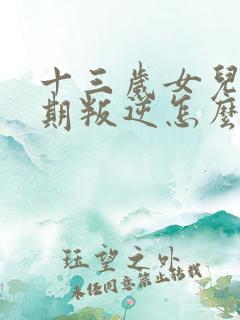 十三歲女兒
期叛逆怎麼
珏望之外
未任同意禁止转载